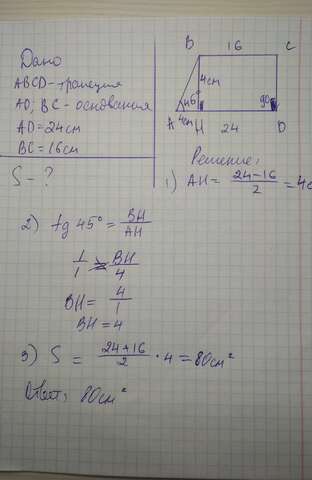 Дано
ABCD - трапеция
AD; BC - основания
AD = 24 см
BC = 16 см
S - ?
B 16 C
4см
45° 90°
A 4см H 24 D
Решение:
1) AH = 24-16/2 = 4с
2) tg 45° = BH/AH
1/1 = BH/4
BH = 4/1
BH = 4
3) S = 24+16/2 · 4 = 80см²
Ответ: 80см²